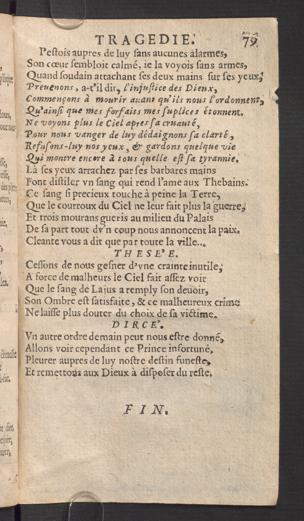 TRAGEDIE. 79
I'estois aupres de luy sans aucunes alarmes,
Son cœur sembloit calmé, ie la voyois sans armes,
Quand soudain attachant ses deux mains sur ses yeux,
Preuenons, a-t'il dit, l'iniustice des Dieux,
Commençons à mourir auant qu'ils nous l'ordonnent,
Qu'ainsi que mes forfaits mes suplices étonnent.
Ne voyons plus le Ciel apres sa cruauté,
Pour nous vanger de luy dédaignons sa clarté,
Refusons-luy nos yeux, & gardons quelque vie
Qui montre encore à tous quelle est sa tyrannie.
Là ses yeux arrachez par ses barbares mains
Font distiler vn sang qui rend l'ame aux Thebains.
Ce sang si precieux touche à peine la Terre,
Que le courroux du Ciel ne leur fait plus la guerre,
Et trois mourans gueris au milieu du Palais
De sa part tout d'vn coup nous annoncent la paix.
Cleante vous a dit que par toute la ville...
THESE'E.
Cessons de nous gesner d'vne crainte inutile,
A force de malheurs le Ciel fait assez voir
Que le sang de Lajus a remply son deuoir,
Son Ombre est satisfaite, & ce malheureux crime
Ne laisse plus douter du choix de sa victime.
DIRCE'.
Vn autre ordre demain peut nous estre donné,
Allons voir cependant ce Prince infortuné,
Pleurer aupres de luy nostre destin funeste,
Et remettons aux Dieux à disposer du reste.
FIN.